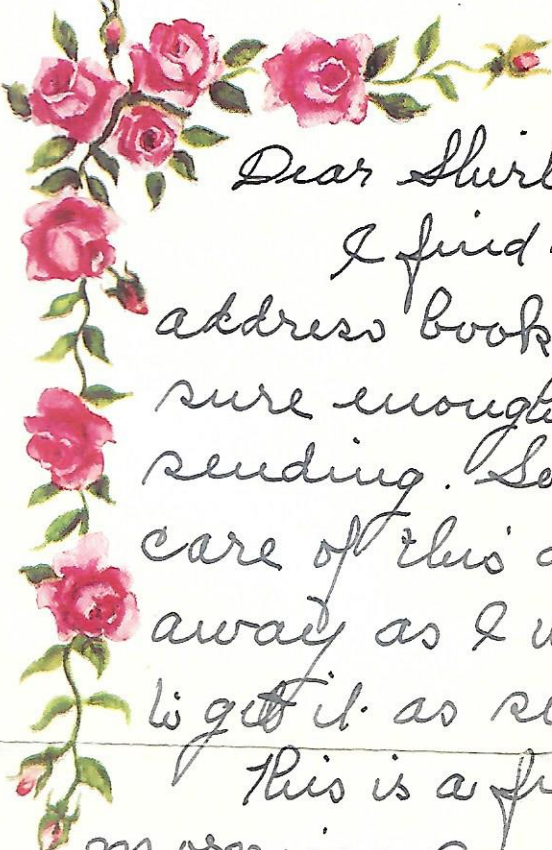 Dear Shirl
I find
address book
sure enough
sending. So
care of this
away as I w
to get it as s
This is a fi
morning